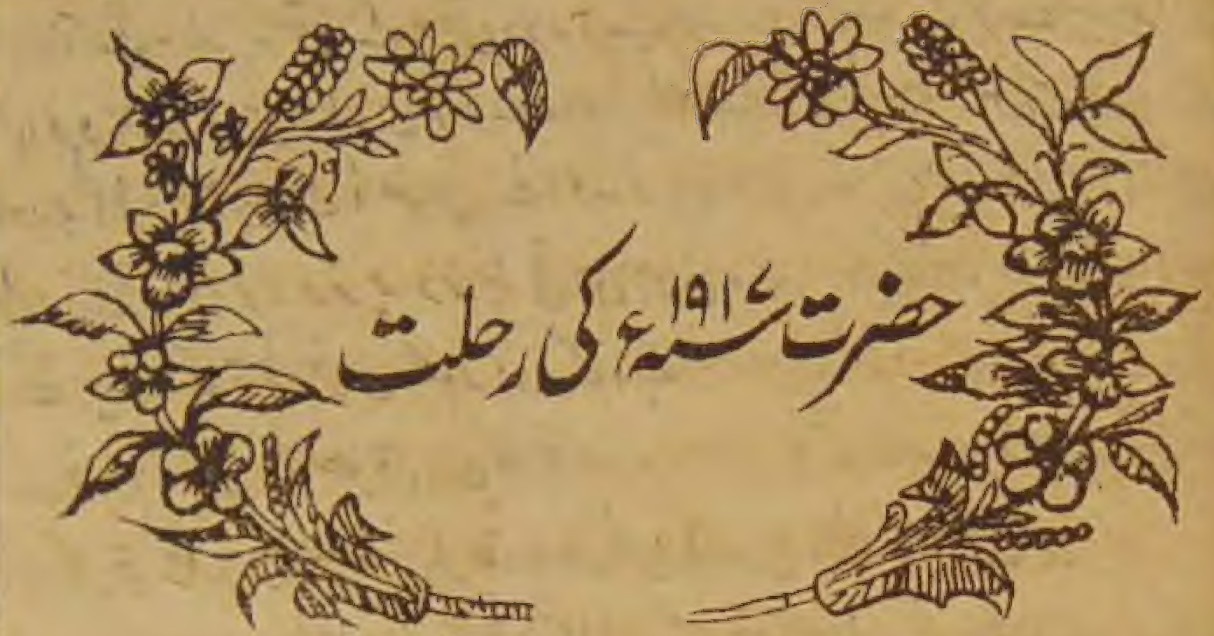 حضرت سنہ ۱۹۱۷ء کی رحلت